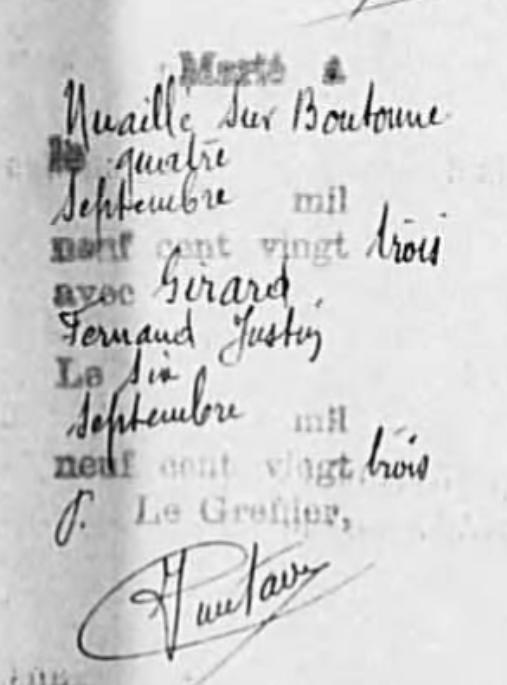 Marié à
Nuaillé sur Boutonne
le quatre
Septembre mil
neuf cent vingt trois
avec Girard
Fernand Justin
Le six
Septembre mil
neuf cent vingt trois
p. Le Greffier,